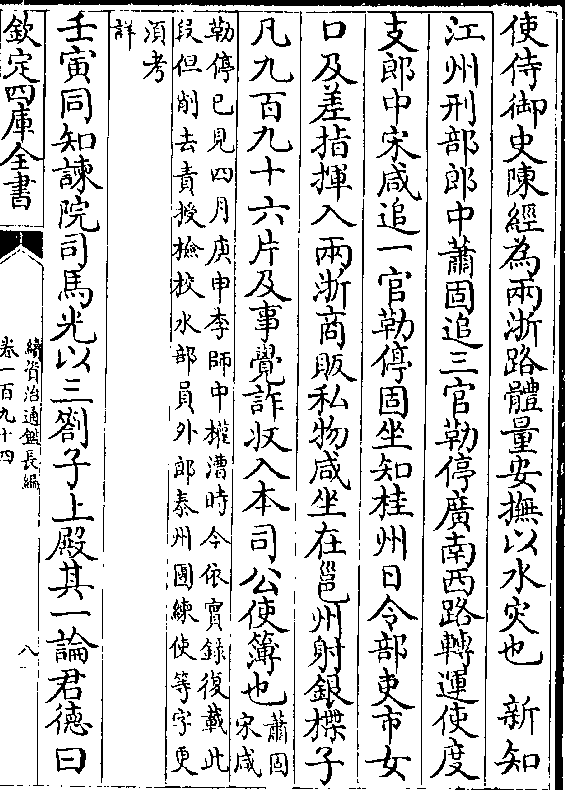 使侍御史陳經為兩浙路體量安撫以水灾也　新知
江州刑部郎中蕭固追三官勒停廣南西路轉運使度
支郎中宋咸追一官勒停固坐知桂州日令部吏市女
口及差指揮入兩浙商販私物咸坐在邕州射銀楪子
凡九百九十六片及事覺詐収入本司公使簿也蕭固
宋咸
勒停已見四月庚申李師中權漕時今依實録復載此
段但削去責授檢校水部員外郎泰州團練使等字更
湏考
詳
壬寅同知諫院司馬光以三劄子上殿其一論君德曰
欽定四庫全書
續資治通鑑長編
卷一百九十四
八